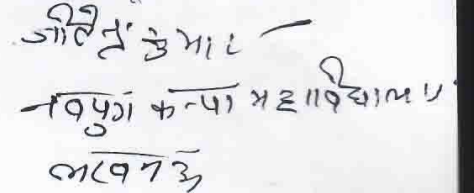 जीतेन्द्र कुमार
नवयुग कन्या महाविद्यालय
लखनऊ